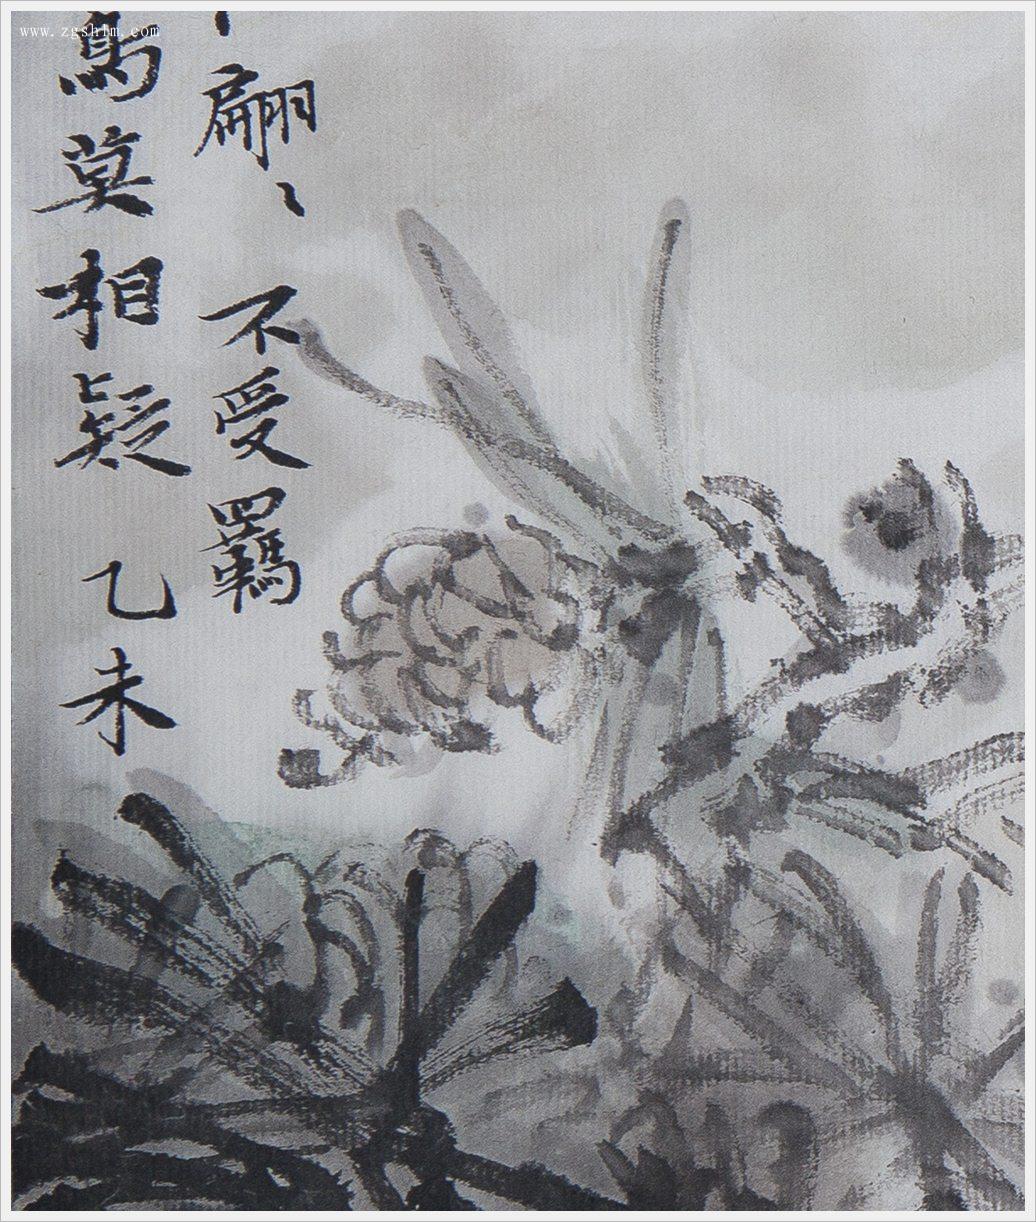 www.zgshlm.com
翩、、不受羈
鳥莫相疑 乙未